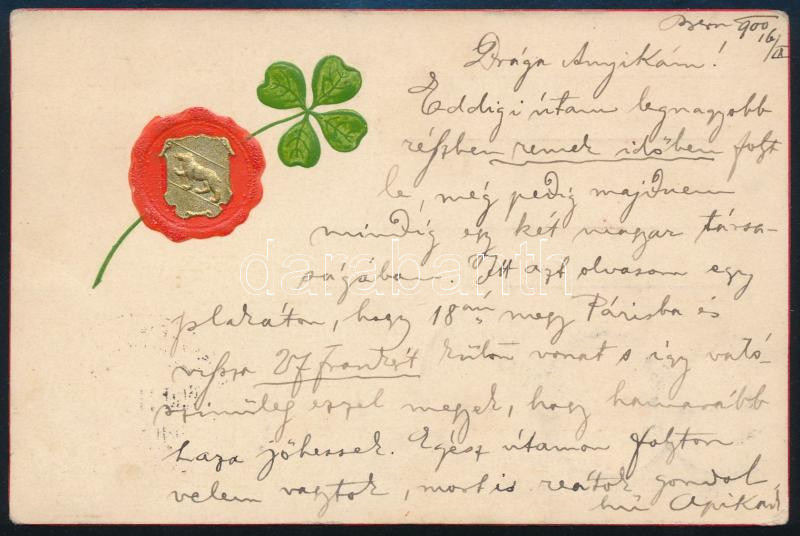 Bern 900 16/IX
Drága Anyikám!
Eddigi útam legnagyobb
részben remek időben folyt
le, még pedig majdnem
mindig egy két magyar társa-
ságában. Itt azt olvasom egy
plakáton, hogy 18án megy Párisba és
vissza 27 frankért külön vonat s így való-
színűleg ezzel megyek, hogy hamarább
haza jőhessek. Egész útamon folyton
velem vagytok, most is reátok gondol
hű Apikád
darabanth